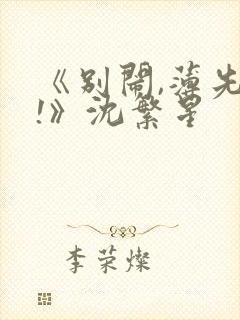 《别闹,薄先
!》沈繁星
李荣灿